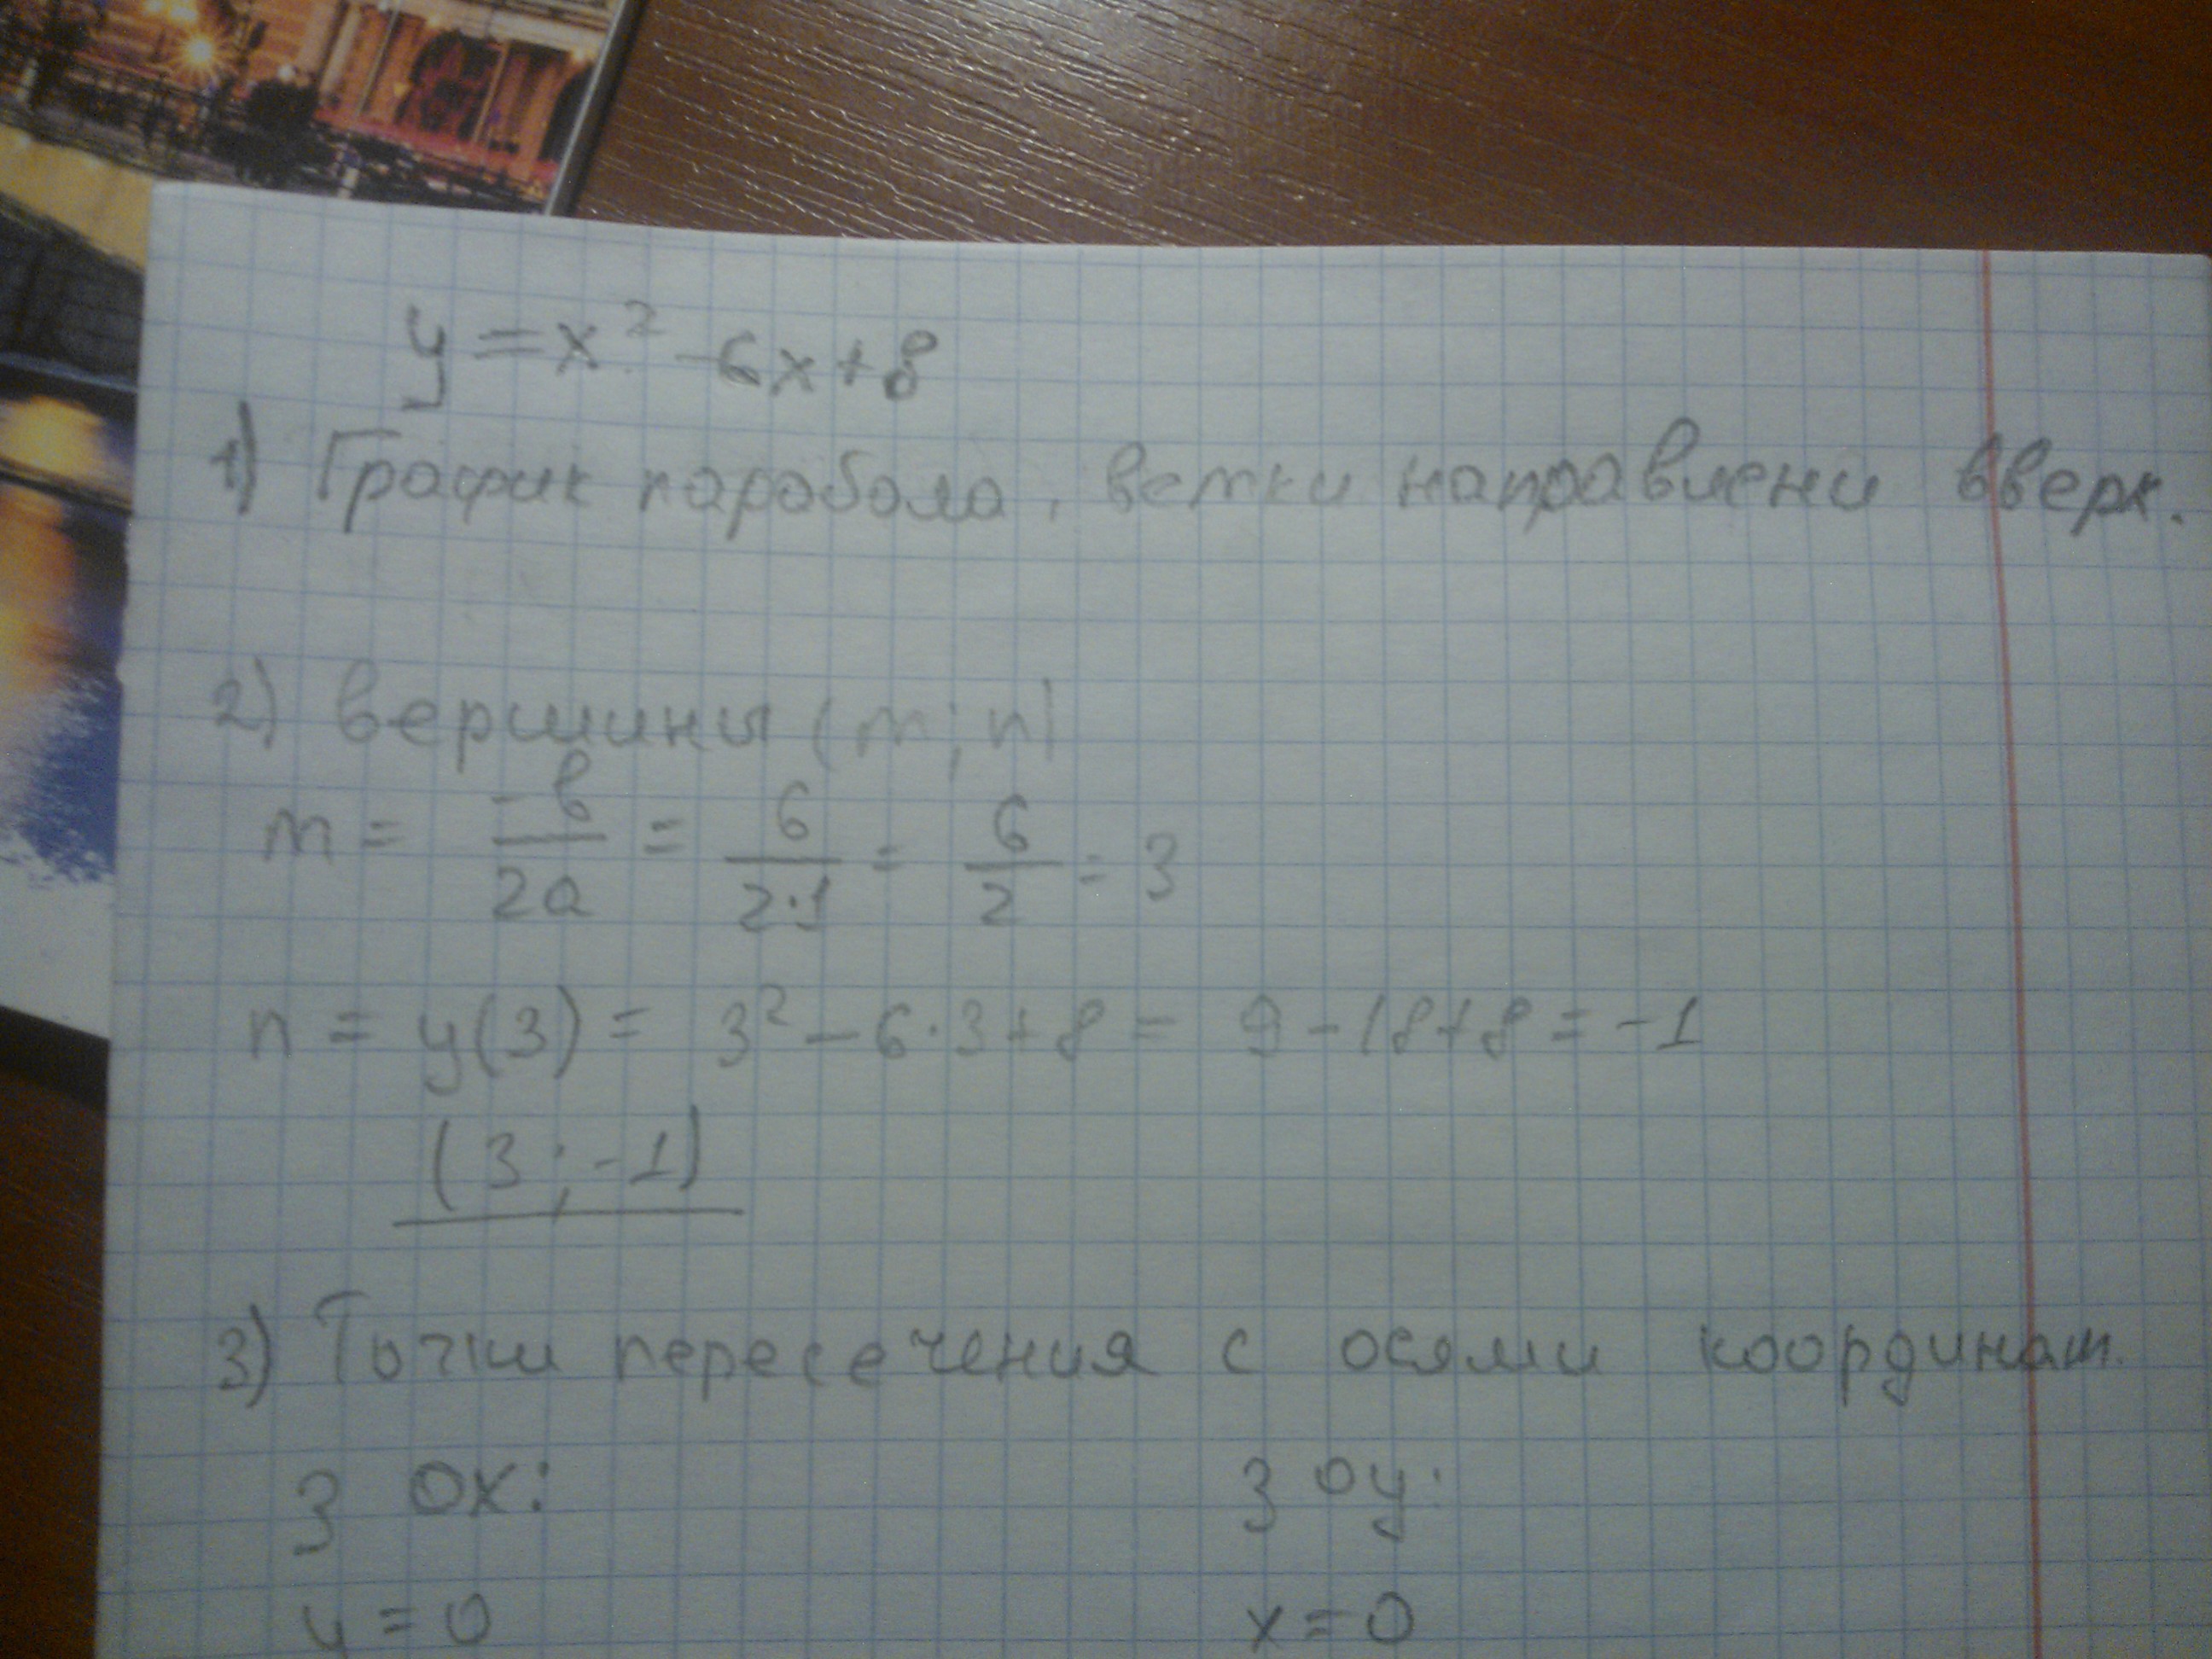 y = x² - 6x + 8
1) График парабола, ветки направлени вверх.
2) вершины (m; n)
m = -b/2a = 6/2·1 = 6/2 = 3
n = y(3) = 3² - 6·3 + 8 = 9 - 18 + 8 = -1
(3; -1)
3) Точки пересечения с осями координат.
З ох: З оу:
y = 0 x = 0